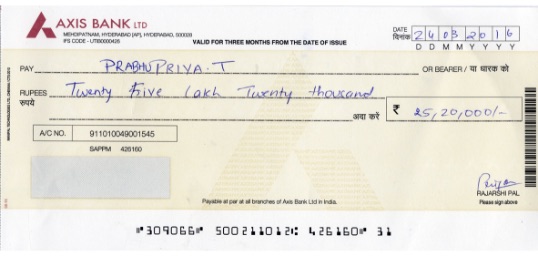 AXIS BANK LTD
MEHOPATNAM, HYDERABAD [AP], HYDERABAD, 500033
IFS CODE - UTIB0000426
VALID FOR THREE MONTHS FROM THE DATE OF ISSUE
DATE दिनांक 24032016
D D M M Y Y Y Y
PAY PRABHUPRIYA.T OR BEARER / या धारक को
RUPEES रुपये Twenty Five Lakh Twenty thousand
अदा करें ₹ 25,20,000/-
A/C NO. 911010049001545
SAPPM 426160
Priya
RAJARSHI PAL
Please sign above
Payable at par at all branches of Axis Bank Ltd in India.
⑈309066⑈ 500211012⑆ 426160⑈ 31